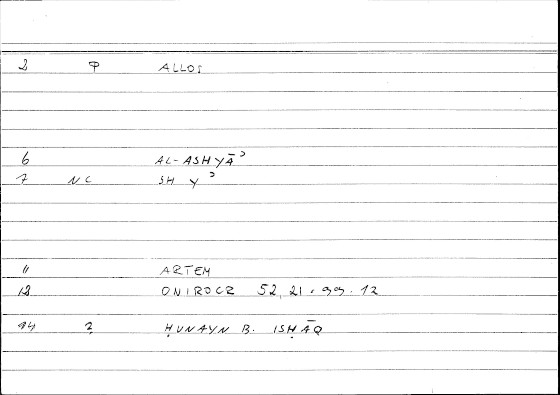 2 φ ALLOS
6 AL-ASHYĀʾ
7 NC SH Y ʾ
11 ARTEM
12 ONIROCR 52, 21 . 99 . 12
94 ḤUNAYN B. ISḤĀQ